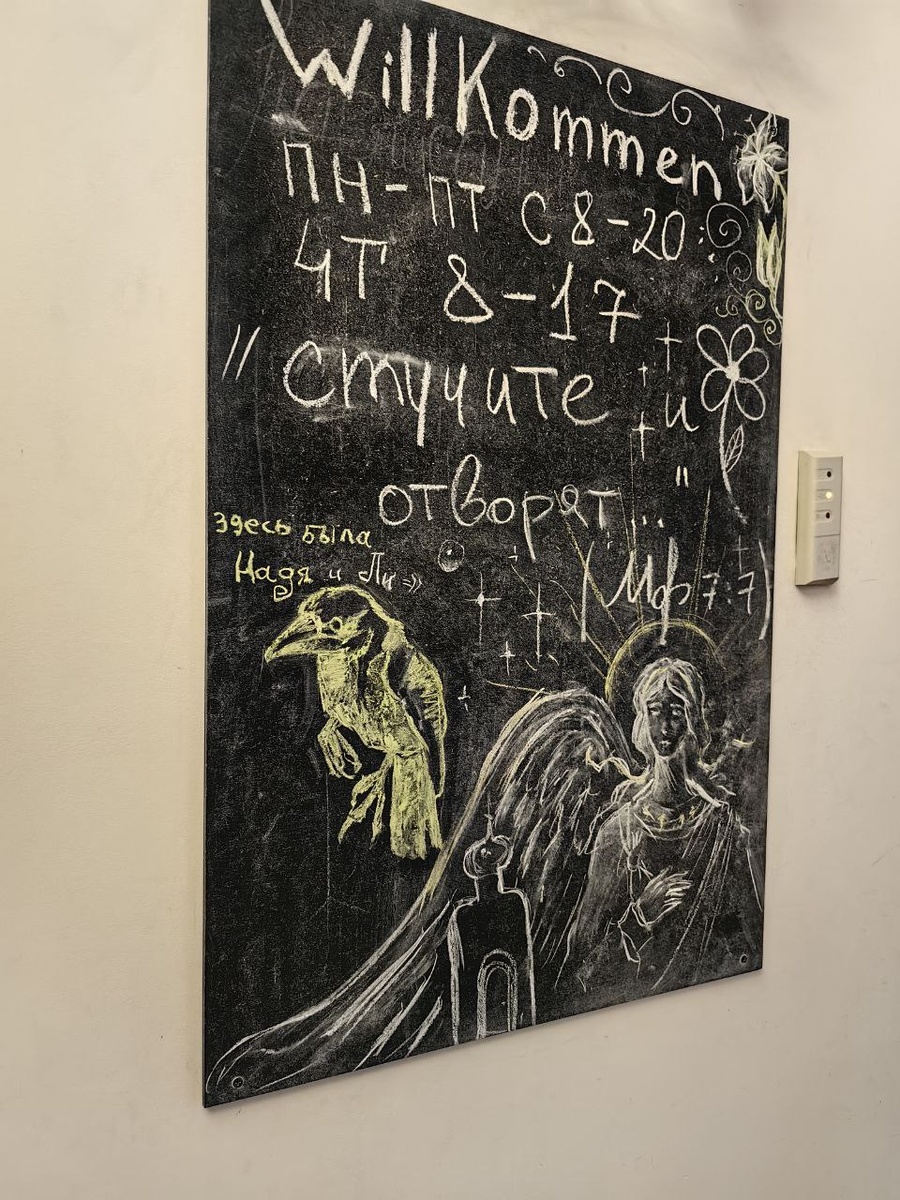 WillKommen
ПН-ПТ С 8-20:
ЧТ 8-17
"Стучите и
отворят..."
(Мф 7:7)
здесь была
Надя и Ли =»